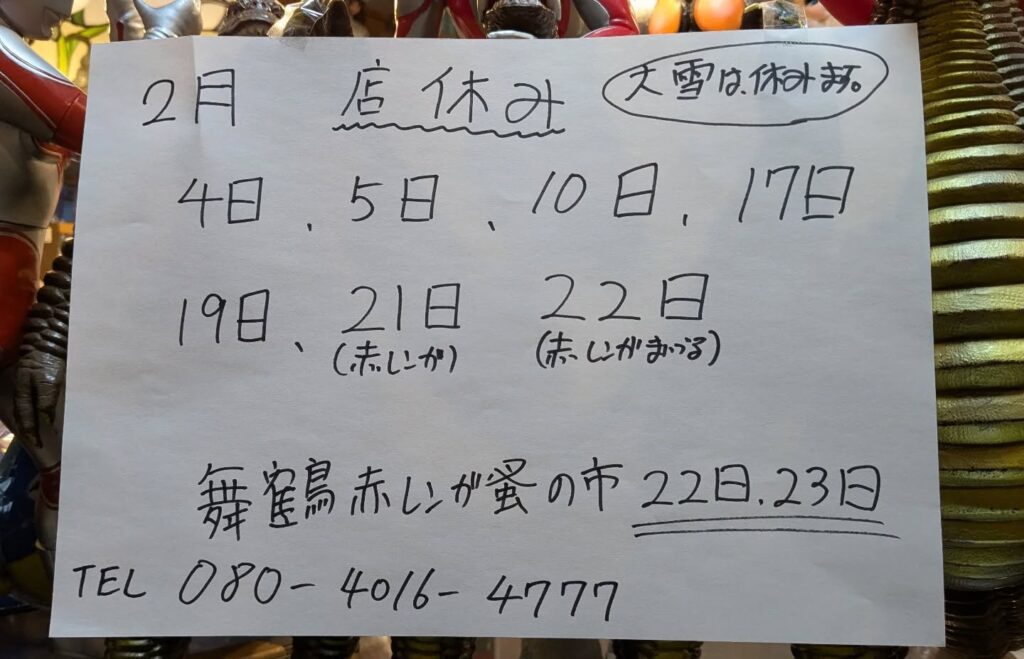 2月 店休み 大雪は、休みます。
4日、5日、10日、17日
19日、21日 22日
(赤レンガ) (赤レンガまいづる)
舞鶴赤レンガ蚤の市 22日、23日
TEL 080-4016-4777